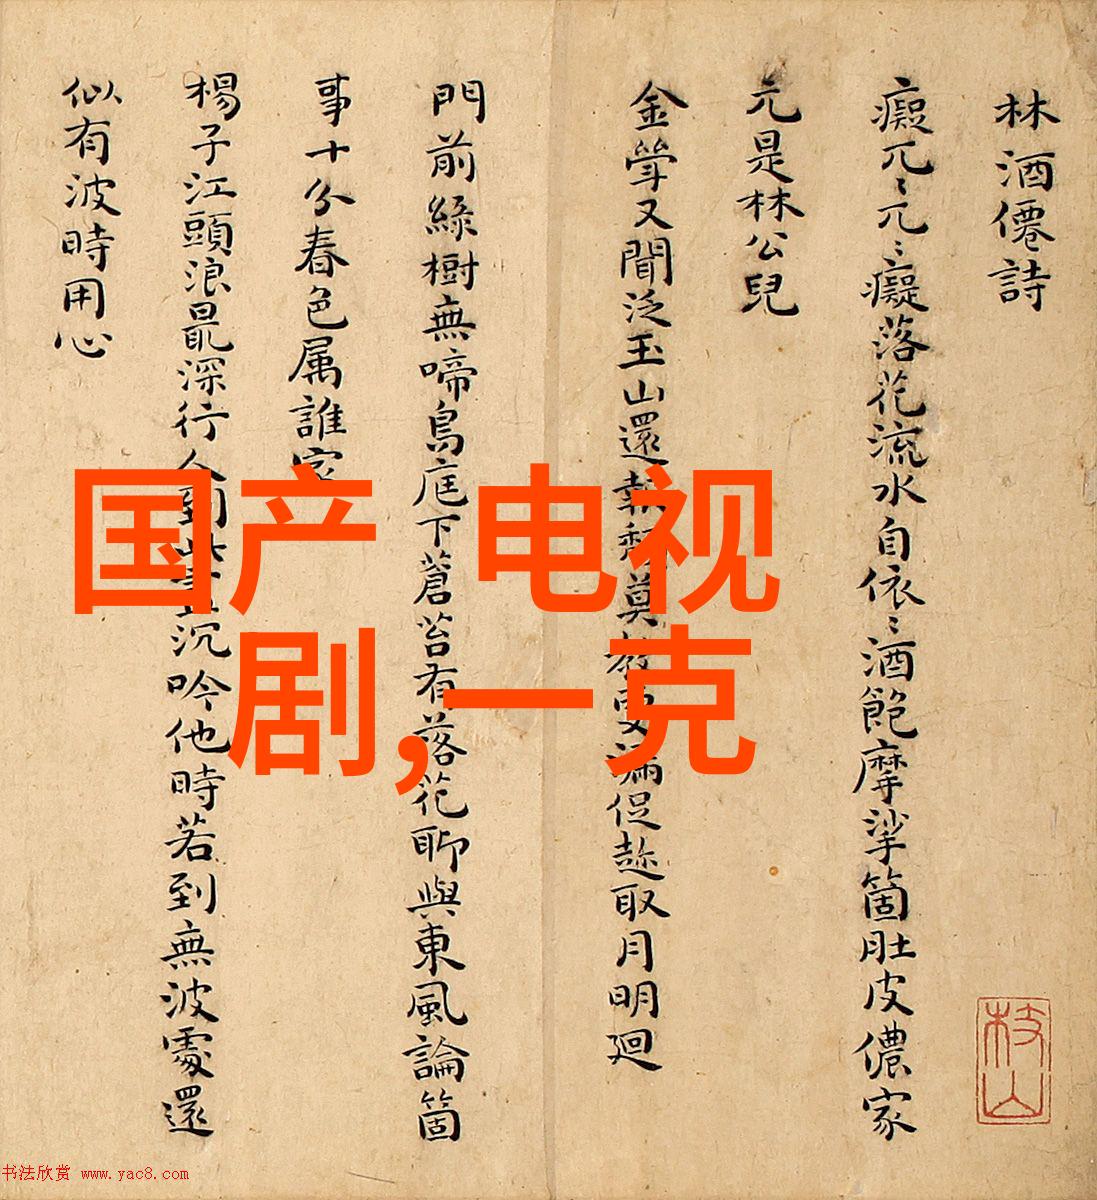 林酒僊詩
癡兀〻兀〻癡落花流水自依〻酒飽摩挲箇肚皮儂家
元是林公兒
金斝又聞泛玉山還報頹莫教更漏促趂取月明廻
門前綠樹無啼鳥庭下蒼苔有落花聊與東風論箇
事十分春色属誰家
楊子江頭浪最深行人到此盡沉吟他時若到無波處還
似有波時用心
枝山
国产 电视
剧,一克
书法欣赏 www.yac8.com